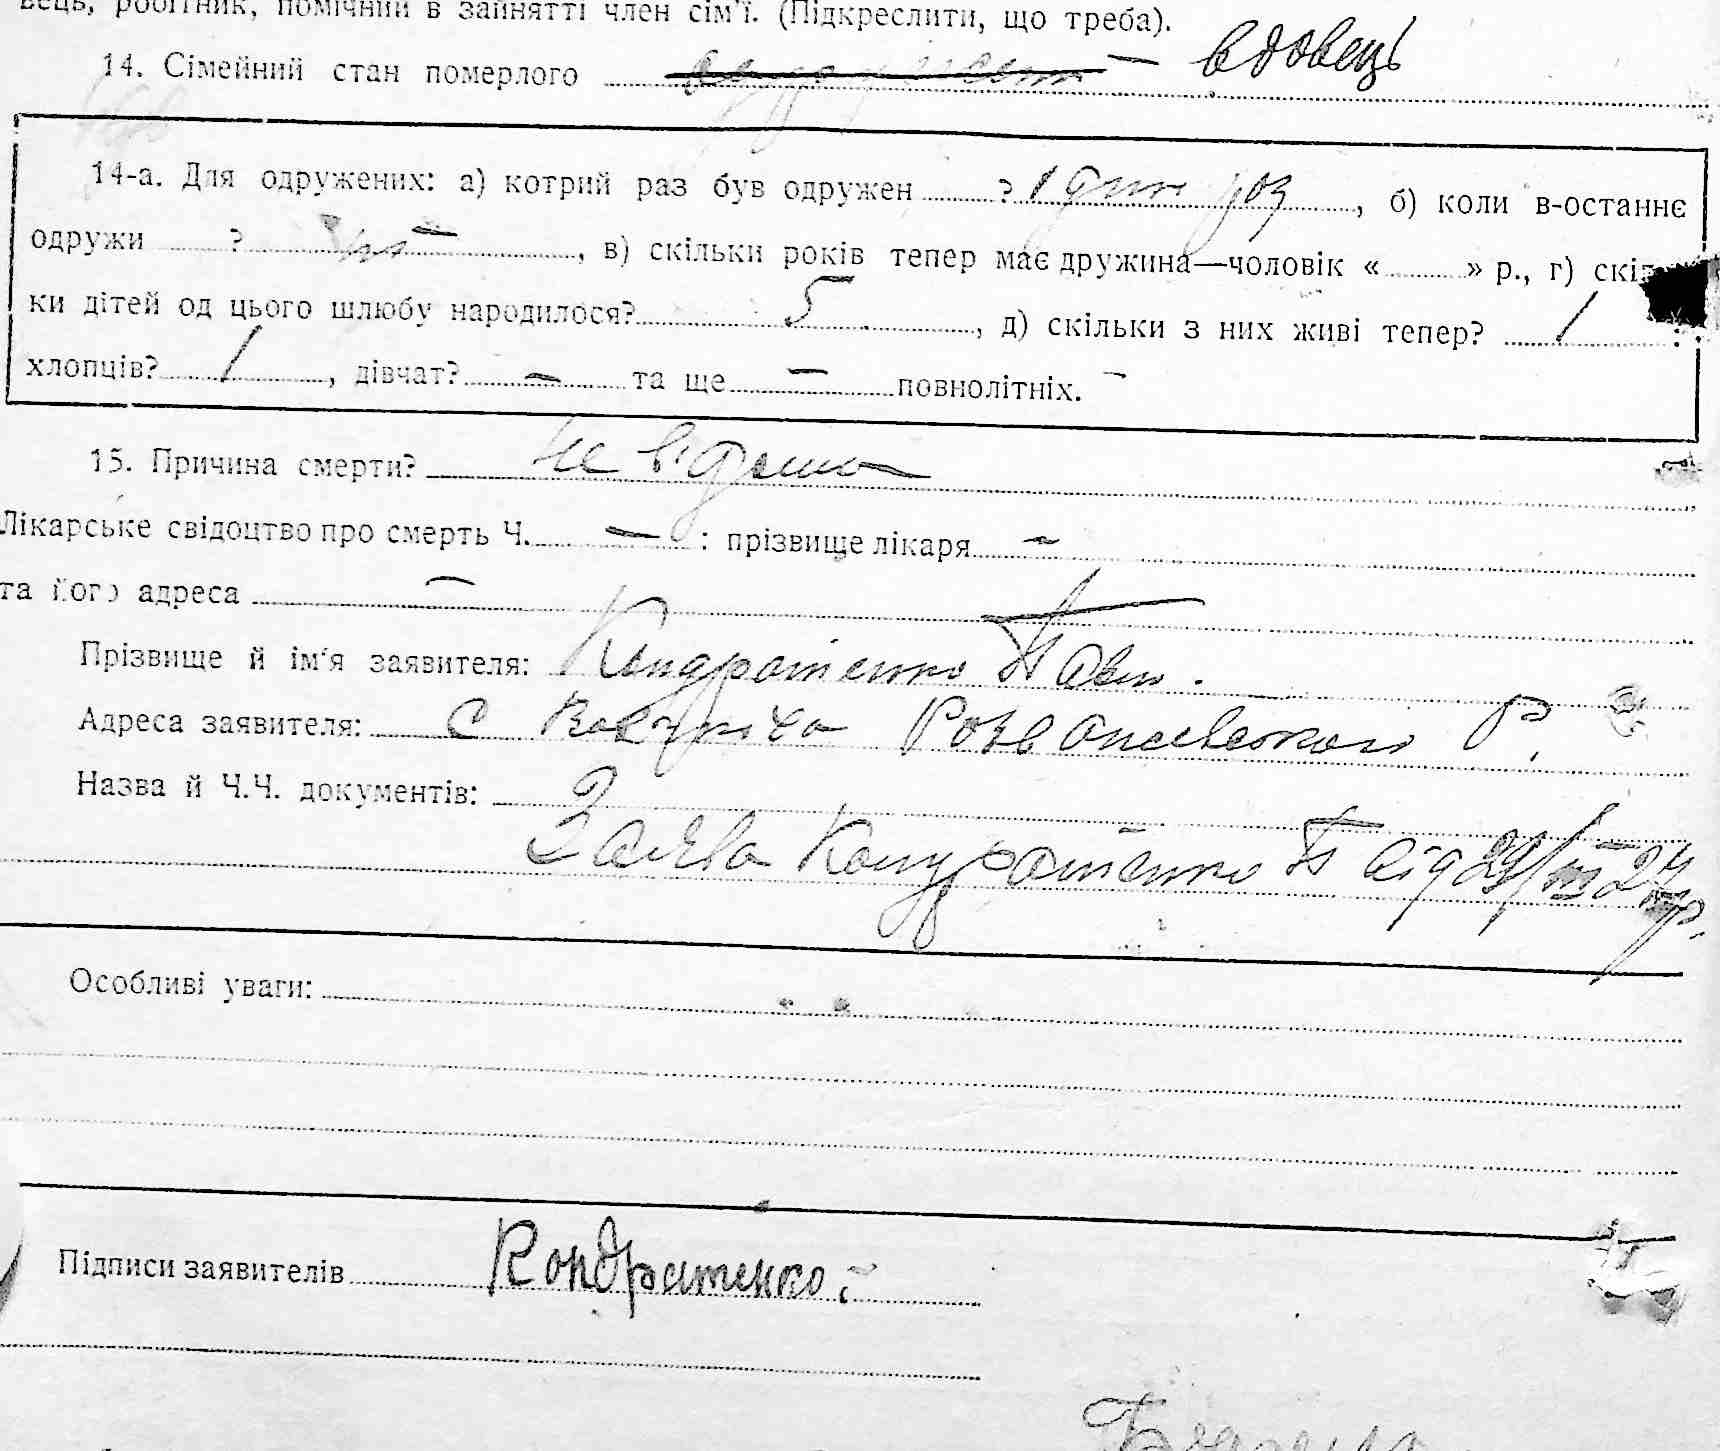 вець, робітник, помічний в зайнятті член сім'ї. (Підкреслити, що треба).
14. Сімейний стан померлого — вдовець
14-а. Для одружених: а) котрий раз був одружен ? один раз, б) коли в-останнє
одружи ? —, в) скільки років тепер має дружина—чоловік « » р., г) скіль
ки дітей од цього шлюбу народилося? 5, д) скільки з них живі тепер? 1 :
хлопців? 1, дівчат? — та ще — повнолітніх. —
15. Причина смерти? не відома
Лікарське свідоцтво про смерть Ч. — : прізвище лікаря —
та його адреса —
Прізвище й ім'я заявителя: Кондратенко
Адреса заявителя: С Розважевського Р.
Назва й Ч.Ч. документів:
Заява Кондратенко П від 29/
Особливі уваги:
Підписи заявителів Кондратенко